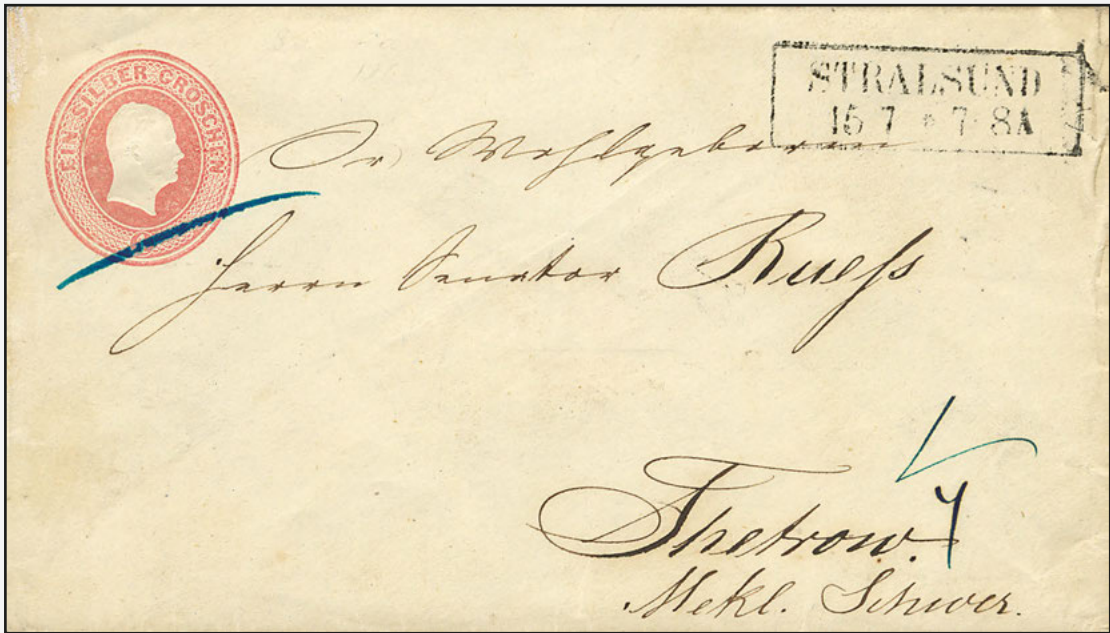 EIN SILBER GROSCHEN
STRALSUND
15 7 * 7-8A
Sr Wohlgeboren
Herrn Senator Ruefs
Thetrow.
Mekl. Schwer.